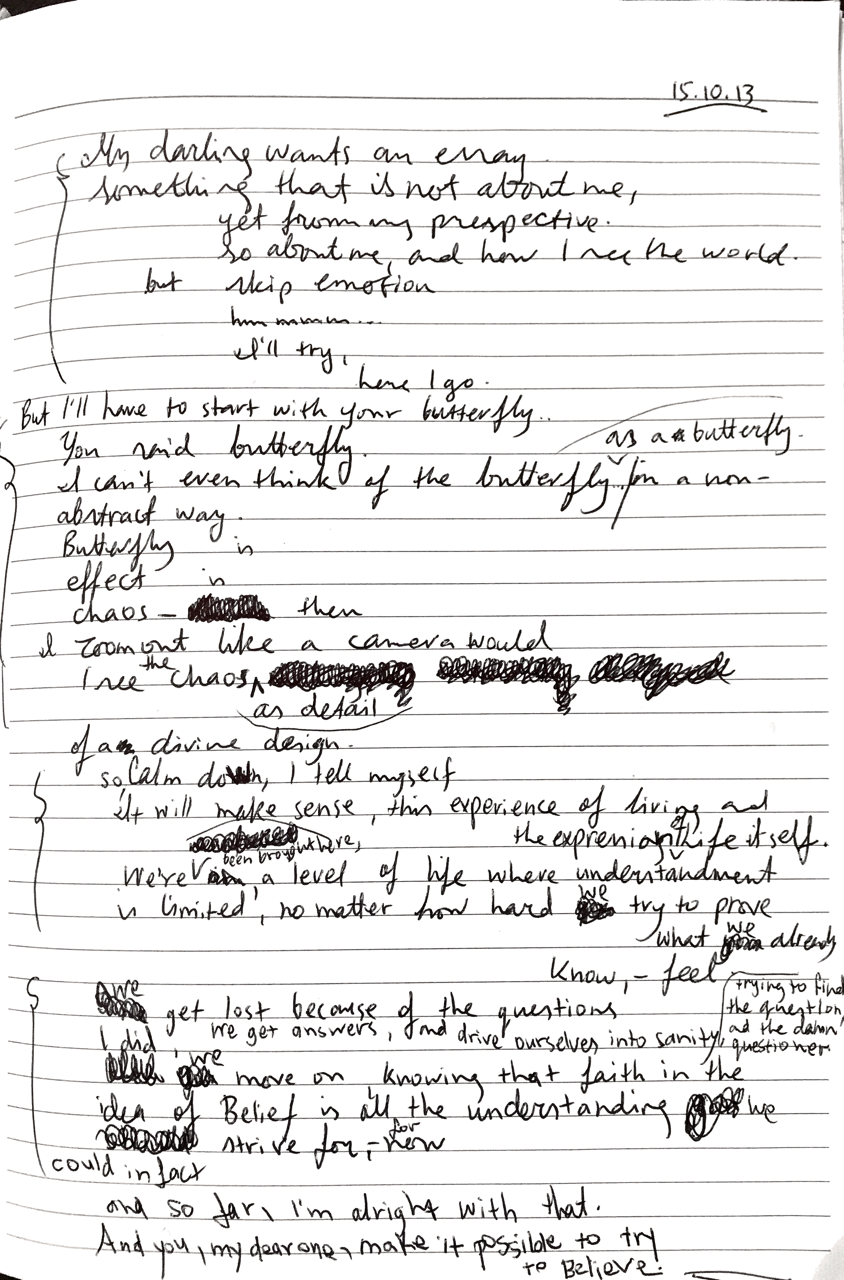 15.10.13
My darling wants an essay
something that is not about me,
yet from my prespective.
so about me, and how I see the world.
but skip emotion
hmmmmmm...
I'll try,
here I go.
But I'll have to start with your butterfly..
You said butterfly.
as a butterfly.
I can't even think of the butterfly in a non-
abstract way.
Butterfly is
effect is
chaos - then
I zoom out like a camera would
I see the chaos,
as detail
of a divine design.
so, calm down, I tell myself
It will make sense, this experience of living and
the expression of life itself.
been brought here,
We're a level of life where understandment
is limited, no matter how hard we try to prove
what we already
know, - feel
we get lost because of the questions
trying to find
the question,
and the damn
questioner
I did, we get answers, and drive ourselves into sanity,
we move on, knowing that faith in the
idea of Belief is all the understanding we
strive for, - for now
could in fact
and so far, I'm alright with that.
And you, my dear one, make it possible to try
to Believe.